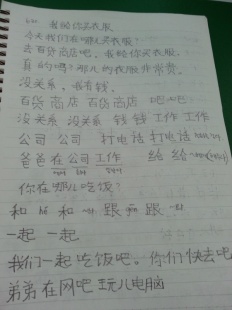 我给你买衣服
今天我们在哪儿买衣服?
去百货商店吧,我给你买衣服。
真的吗?那儿的衣服非常贵。
没关系,我有钱。
百货商店 百货商店 吧 吧
没关系 没关系 钱 钱 工作 工作
公司 公司 打电话 打电话
爸爸在公司工作 给 给
你在哪儿吃饭?
和 和 跟 跟
一起 一起
我们一起吃饭吧。你们快去吧
弟弟在网吧玩儿电脑